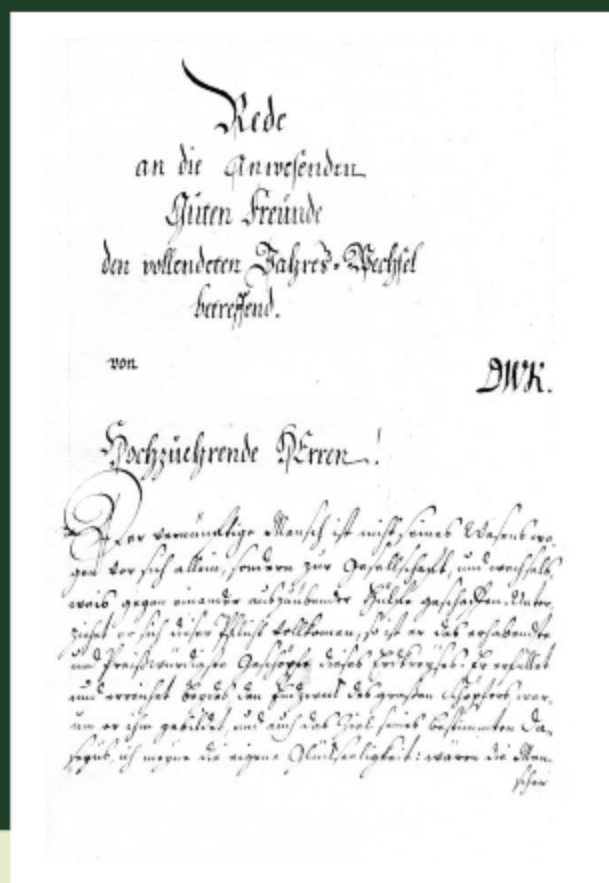 Rede
an die Anwesenden
Guten Freünde
den vollendeten Jahres-Wechsel
betreffend.
von
DWK.
Hochzüehrende HErren!
Der vernünftige Mensch ist nicht seines Wesens we-
gen vor sich allein, sondern zur Gesellschaft, und wechsels-
weis gegen einander auszuübender Hülfe geschaffen. Unter-
ziehet er sich dieser Pflicht vollkomen, so ist er das erhabendste
und Preißwürdigste Geschöpfe dieses Erdkreyses. Er erfüllet
und erreichet beydes, den Endzweck des großen Schöpfers, war-
um er ihn gebildet, und auch das Ziel seines bestimmten Da-
seyns, ich meyne die eigene Glückseeligkeit: wären die Men-
schen